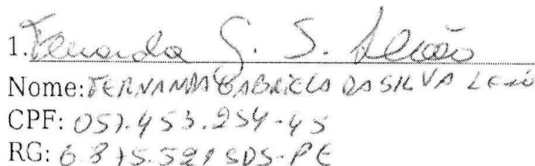 1. Fernanda G. S. Leão
Nome: FERNANDA GABRIELA DA SILVA LEÃO
CPF: 057.453.254-45
RG: 6.875.521 SDS-PE